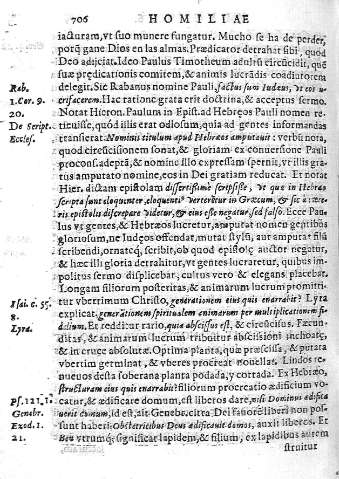 706 HOMILIAE
iacturam, vt suo munere fungatur. Mucho se ha de perder,
porq̃ gane Dios en las almas. Prædicator detrahat sibi, quod
Deo adijciat. Ideo Paulus Timotheum adultũ circũcidit, quẽ
suæ prædicationis comitem, & animis lucrãdis coadiutorem
Rab. delegit. Sic Rabanus nomine Pauli, factus sum Iudæus, vt eos lu-
1. Cor. 9. crifacerem. Hac ratione grata erit doctrina, & acceptus sermo.
20. Notat Hieron. Paulum in Epist. ad Hebræos Pauli nomen re-
De Script. ticuisse, quod illis erat odiosum, quia ad gentes informandas
Eccles. transierat. Nominis titulum apud Hebræos amputauit verbi nota,
quod circũcisionem sonat, & gloriam ex conuersione Pauli
procons. adeptã, & nomine illo expressam spernit, vt illis gra-
tus amputato nomine, eos in Dei gratiam reducat. Et notat
Hier. dictam epistolam dissertissimè scripsisse, vt que in Hebræo
scripta sunt eloquenter, eloquentiùs verterẽtur in Græcum, & sic à cæte-
ris epistolis discrepare videtur, & eius esse negatur, sed falso. Ecce Pau-
lus vt gentes, & Hebræos lucretur, amputat nomen gentibus
gloriosum, ne Iudæos offendat, mutat stylũ, aut amputat filũ
scribendi, ornatẽq; scribit, ob quod epistolæ auctor negatur,
& hæc illi gloria detrahitur, vt gentes lucraretur, quibus im-
politus sermo displicebat, cultus vero & elegans placebat.
Longam filiorum posteritatem, & animarum lucrum promitti-
Isai. c. 53. tur vberrimum Christo, generationem eius quis enarrabit? Lyra
8. explicat generationem spiritualem animarum per multiplicationem fi-
Lyra. delium. Et redditur ratio, quia abscissus est, & circũcisus. Fæcun-
ditas, & animarum lucrum tribuitur abscissioni inchoatę,
& in cruce absolutæ. Optima planta, quæ præscissa, & putata
vbertim germinat, & vberes procreat nouellas. Lindos re-
nueuos desta soberana planta podada, y cortada. Ex Hebræo,
structuram eius quis enarrabit? filiorum procreatio ædificium vo-
Ps. 121. 1. catur, & ædificare domum, est liberos dare, nisi Dominus ædifica
Genebr. uerit domum, id est, ait Genebr. citra Dei fauorẽ liberi non pos-
Exod. 1. sunt haberi: Obstetricibus Deus ædificauit domos, auxit liberos. Et
21. Ben vtrumq; significat lapidem, & filium, ex lapidibus autem
struitur